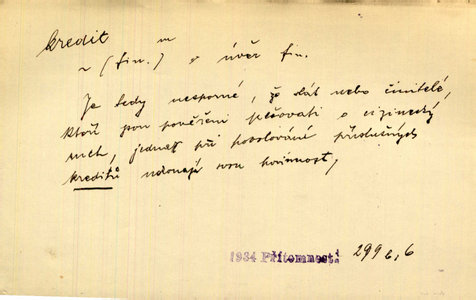 kredit m
~ (fin.) v úvěr fin.
Je tedy nesporné, že stát nebo činitelé,
kteří jsou pověřeni pečovati o cizinecký
ruch, jednak při povolování příslušných
kreditů nekonají svou povinnost,
1934 Přítomnost 299 6,6